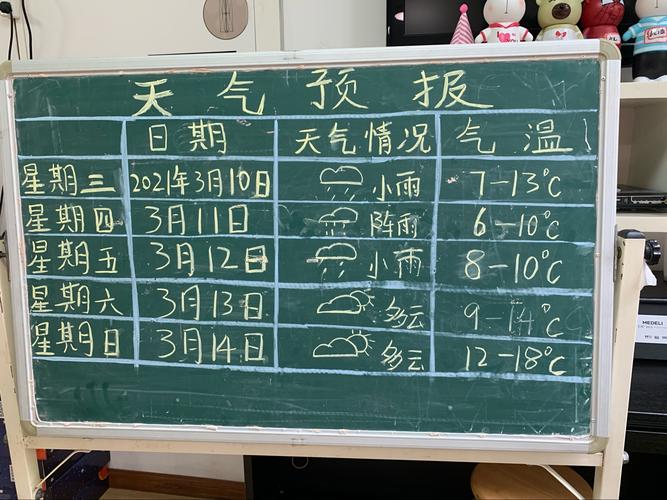 天气预报
日期 天气情况 气温
星期三 2021年3月10日 小雨 7-13°C
星期四 3月11日 阵雨 6-10°C
星期五 3月12日 小雨 8-10°C
星期六 3月13日 多云 9-14°C
星期日 3月14日 多云 12-18°C
MEDELI